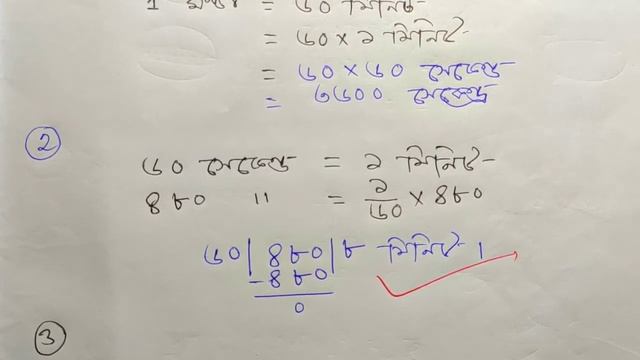 1 ঘণ্টা = ৬০ মিনিট
= ৬০ × ১ মিনিট
= ৬০ × ৬০ সেকেন্ড
= ৩৬০০ সেকেন্ড
2
৬০ সেকেন্ড = ১ মিনিট
৪৮০ " = ১/৬০ × ৪৮০
৬০|৪৮০|৮ মিনিট।
-৪৮০
০
3